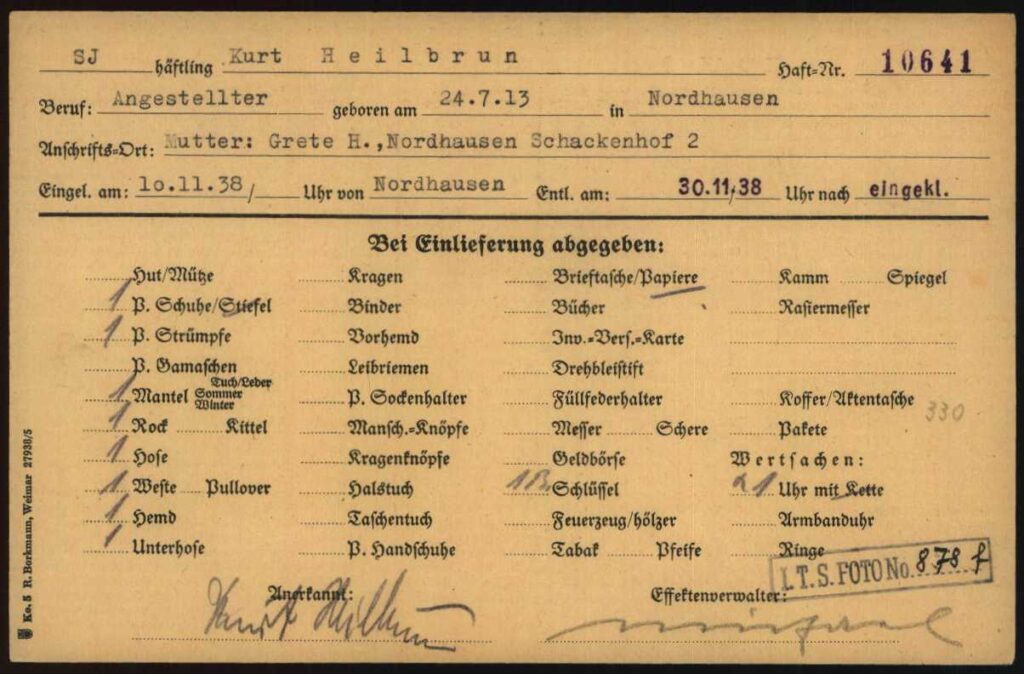 SJ häftling Kurt Heilbrun Haft=Nr. 10641
Beruf: Angestellter geboren am 24.7.13 in Nordhausen
Anschrifts=Ort: Mutter: Grete H.,Nordhausen Schackenhof 2
Eingel. am: 10.11.38/ Uhr von Nordhausen Entl. am: 30.11.38 Uhr nach eingekl.
Bei Einlieferung abgegeben:
Hut/Mütze Kragen Brieftasche/Papiere Kamm Spiegel
1 P. Schuhe/Stiefel Binder Bücher Rasiermesser
1 P. Strümpfe Vorhemd Inv.=Vers.=Karte
P. Gamaschen Leibriemen Drehbleistift
1 Mantel Tuch/Leder Sommer Winter P. Sockenhalter Füllfederhalter Koffer/Aktentasche 330
1 Rock Kittel Mansch.=Knöpfe Messer Schere Pakete
1 Hose Kragenknöpfe Geldbörse Wertsachen:
1 Weste Pullover Halstuch 1 Schlüssel 1 Uhr mit Kette
1 Hemd Taschentuch Feuerzeug/hölzer Armbanduhr
1 Unterhose P. Handschuhe Tabak Pfeife Ringe
I.T.S. FOTO No. 878 f
Anerkannt: Effektenverwalter:
Kurt Heilbrun
Ko. 5 R. Borkmann, Weimar 27938/5